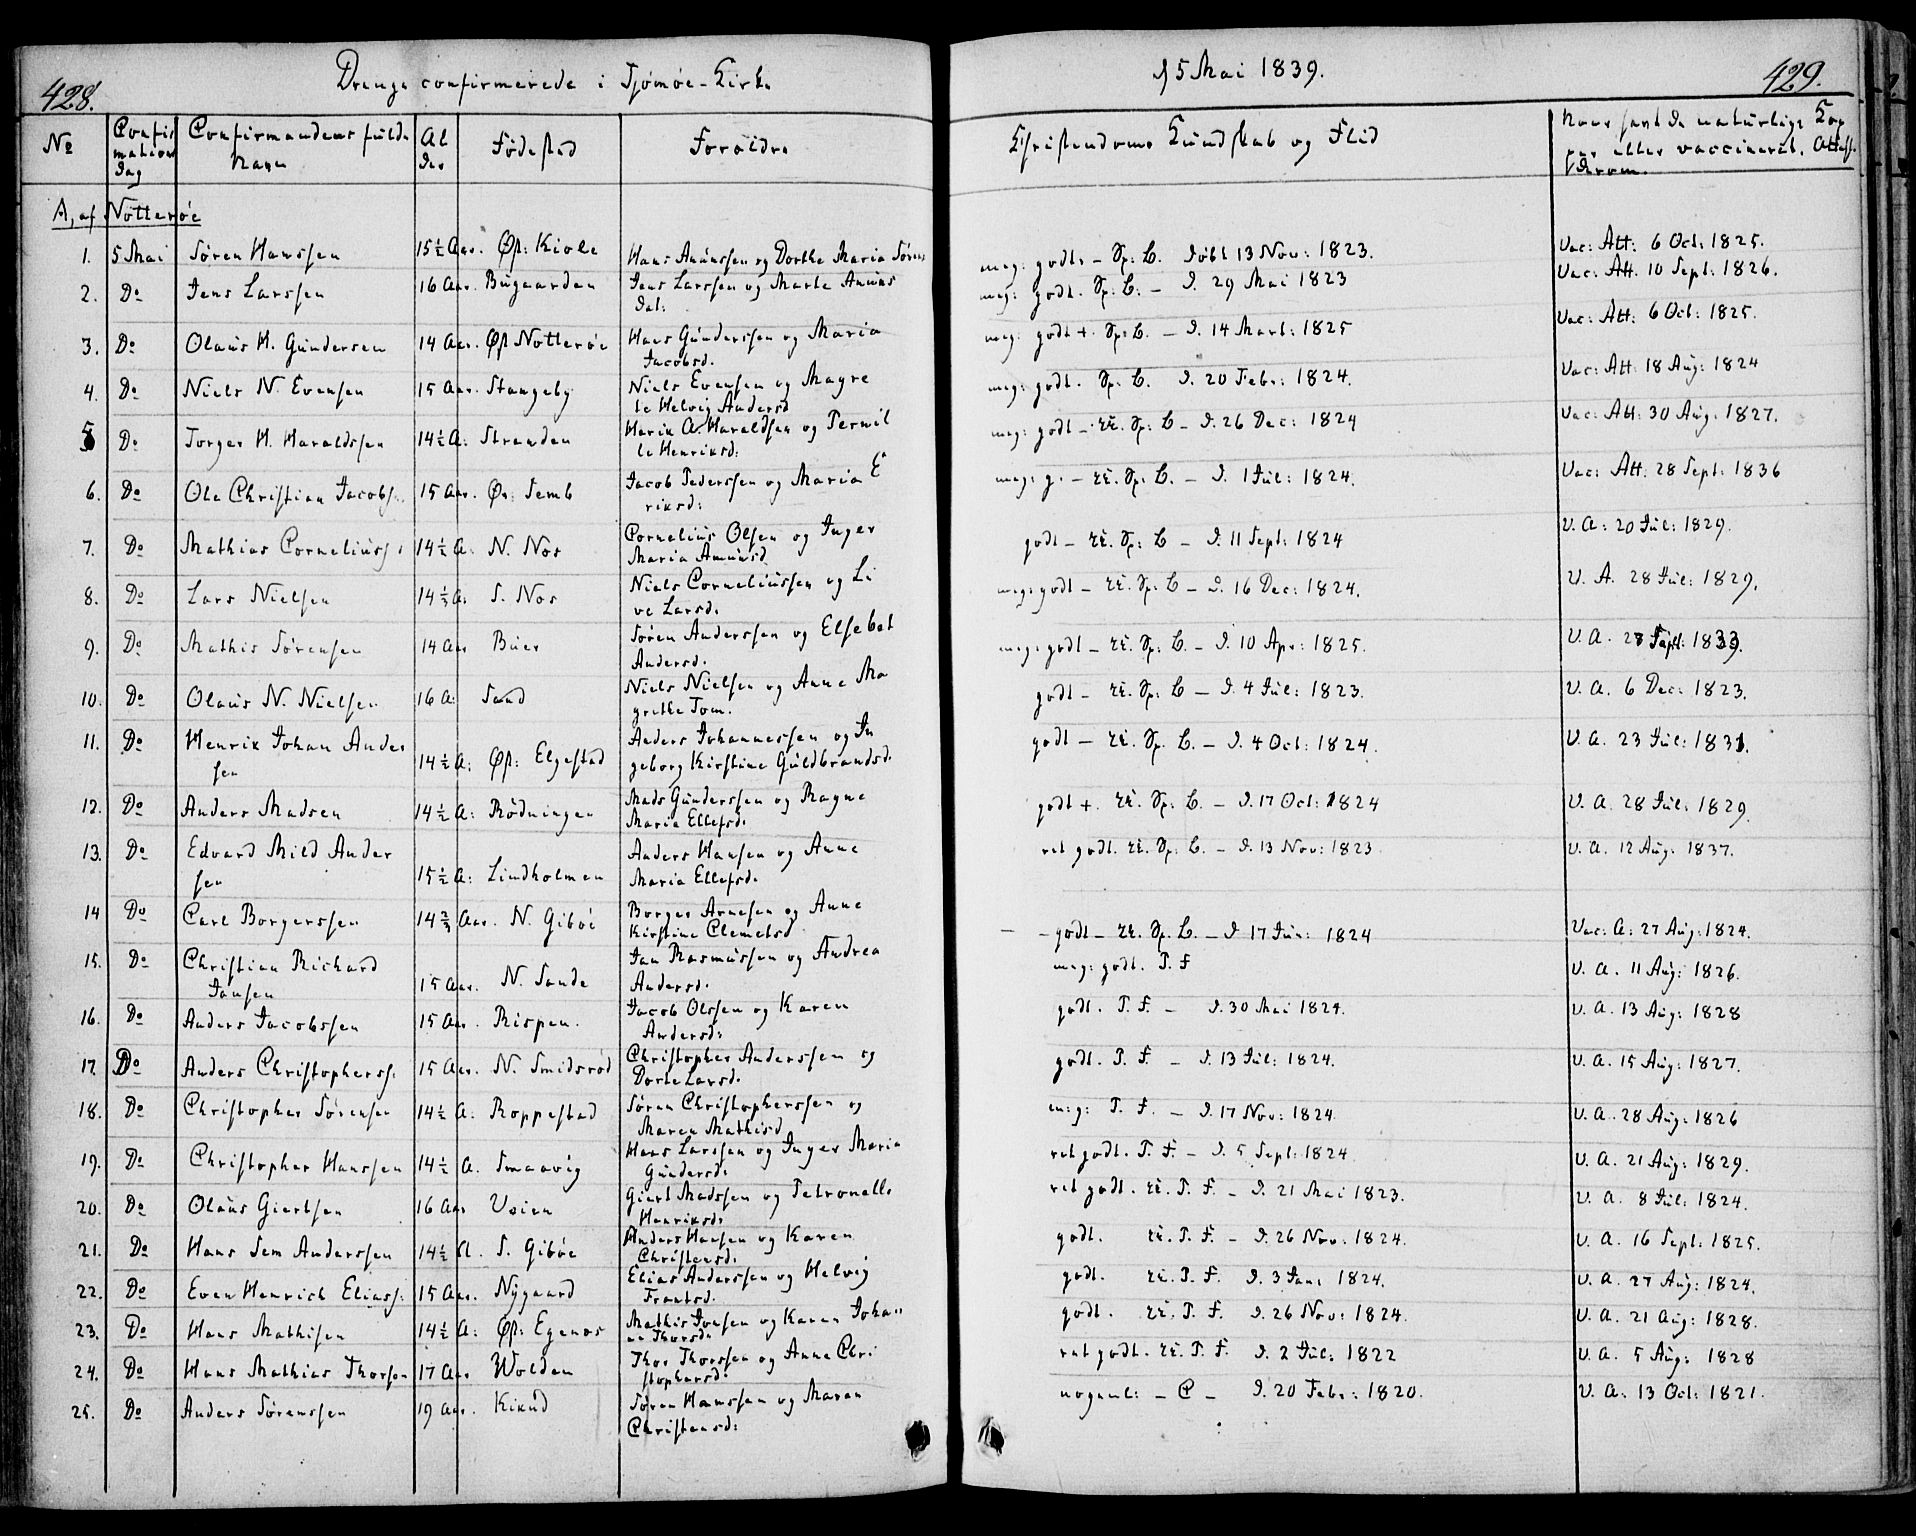 428. Drenge confirmerede i Tjømøe-Kirke d 5 Mai 1839. 429.
No Confirmations Dag Confirmandens fulde Navn Alder Fødested Forældre Christendoms Kundskab og Flid
A, af Nøtterøe
1. 5 Mai Søren Hanssen 15½ Aar. Øs: Kiole Hans Amunssen og Dorthe Maria Sørens meg: godt. - Sp: L. Døbt 13 Nov: 1823. Vac: Att: 6 Oct: 1825.
2. Do Jens Larssen 16 Aar. Bugaarden Jens Larssen og Marte Amuns
Dat: meg: godt. Sp: L. - D. 29 Mai 1823 Vac: Att. 10 Sept: 1826.
3. Do Olaus H. Gundersen 14 Aar. Øs Nøtterøe Hans Gunderssen og Maria
Jacobsd. meg: godt +. Sp: L. - D. 14 Mart: 1825 Vac: Att: 6 Oct: 1825.
4. Do Niels N. Evensen 15 Aar. Stangeby Niels Evensen og Magre
te Helvig Andersd meg: godt. Sp: L. D. 20 Febr: 1824. Vac: Att: 18 Aug: 1824
5 Do Torger H. Haraldssen 14½ A: Stranden Henrik A. Haraldsen og Pernil
le Henriksd: meg: godt - Sp: L - D. 26 Dec: 1824 Vac: Att: 30 Aug: 1827.
6. Do Ole Christian Jacobs. 15 Aar. Øs: Semb Jacob Pederssen og Maria E
riksd: meg: g. - Sp: L. - D. 1 Jul: 1824. Vac: Att: 28 Sept: 1836
7. Do Mathias Corneliuss: 14½ A: N. Nes Cornelius Olsen og Inger
Maria Amunsd godt - Sp: L - D. 11 Sept: 1824 V. A: 20 Jul: 1829.
8. Do Lars Nielsen 14⅓ A: S. Nes Niels Corneliussen og Li
ve Larsd. meg: godt - Sp: L - D. 16 Dec: 1824. V. A. 28 Jul: 1829.
9. Do Mathis Sørensen 14 Aar Buer Søren Anderssen og Elsebet
Andersd. meg: godt - Sp: L. - D. 10 Apr: 1825. V. A.
10. Do Olaus N. Nielsen 16 A: Sand Niels Nielsen og Anne Ma
grethe Tom. godt - Sp: L - D. 4 Jul: 1823. V. A. 6 Dec: 1823.
11. Do Henrik Johan Ander
sen 14½ A: Øs: Elgestad Anders Johannessen og In
geborg Kirstine Guldbrandsd. godt - Sp. L. - D. 4 Oct: 1824. V. A. 23 Jul: 1831.
12. Do Anders Madsen 14½ A: Rødningen Mads Gunderssen og Ragne
Maria Ellefsd. godt +. Sp: L. - D. 17 Oct: 1824 V. A. 28 Jul: 1829.
13. Do Edvard Mild Ander
sen 15½ A: Lindholmen Anders Hansen og Anne
Maria Ellefsd. ret godt. Sp: L. - D. 13 Nov: 1823 V. A. 12 Aug: 1837.
14 Do Carl Borgerssen 14⅔ Aar. N. Gibøe Borger Arnesen og Anne
Kirstine Clemetsd - godt - Sp. L. - D 17 Jun: 1824 Vac: A: 27 Aug: 1824.
15. Do Christian Richard
Jansen 15 Aar. N. Sande Jan Rasmussen og Andrea
Andersd. meg: godt. P. F V. A. 11 Aug: 1826.
16. Do Anders Jacobssen 15 Aar. Rispen. Jacob Olssen og Karen
Andersd: godt. P. F. - D. 30 Mai 1824. V. A. 13 Aug: 1828
17. Do Anders Christopherss: 15 Aar. N. Smidsrød Christopher Anderssen og
Dorte Larsd. godt. P. F. - D. 13 Jul: 1824. V. A. 15 Aug: 1827.
18. Do Christopher Sørensen 14½ A: Roppestad Søren Christopherssen og
Maren Mathisd m: g: P. F. - D. 17 Nov: 1824. V. A. 28 Aug: 1826
19. Do Christopher Hanssen 14½ A. Smaavig Hans Larssen og Inger Maria
Gundersd: ret godt. P. F. - D. 5 Sept: 1824 V. A. 21 Aug: 1829.
20. Do Olaus Giertsen 16 Aar Veien Giert Madssen og Petronelle
Henriksd: ret godt. P. F. - D. 21 Mai 1823. V. A. 8 Jul: 1824.
21. Do Hans Sem Anderssen 14½ A. S. Gibøe Anders Hansen og Karen
Christensd: godt. P. F - D. 26 Nov: 1824. V. A. 16 Sept: 1825.
22. Do Even Henrich Eliass: 15 Aar. Nygaard Elias Anderssen og Helvig
Frantsd. godt. P. F. D. 3 Jan: 1824. V. A. 27 Aug: 1824.
23. Do Hans Mathisen 14½ A: Øs: Egenes Mathis Jonsen og Karen Johan
ne Thorsd. godt. P. F. D. 26 Nov: 1824. V. A. 21 Aug: 1828.
24. Do Hans Mathias Thorsen 17 Aar Wolden Thor Thorssen og Anne Chri
stophersd. ret godt. P. F. D. 2 Jul: 1822 V. A. 5 Aug: 1828
25. Do Anders Sørenssen 19 Aar. Kikud Søren Hanssen og Maren
Christensd: nogenl: - C - D. 20 Febr: 1820. V. A: 13 Oct: 1821.